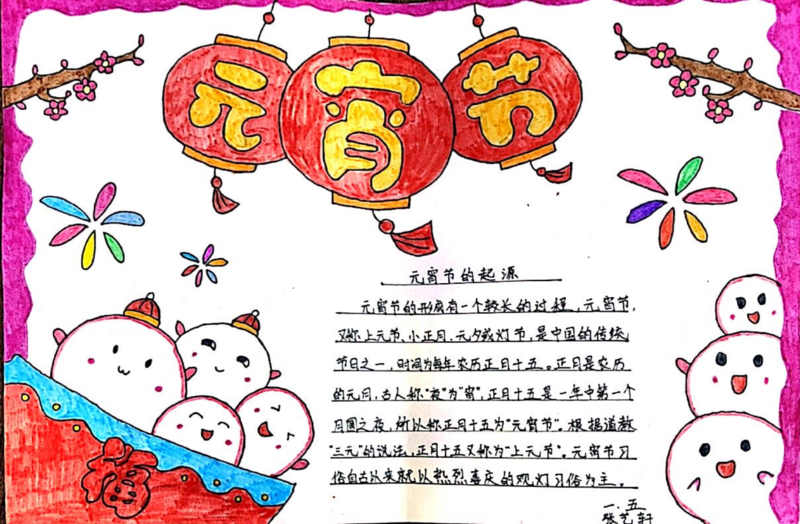 元宵节
元宵节的起源
元宵节的形成有一个较长的过程，元宵节，
又称上元节、小正月、元夕或灯节，是中国的传统
节日之一，时间为每年农历正月十五。正月是农历
的元月，古人称“夜”为“宵”，正月十五是一年中第一个
月圆之夜，所以称正月十五为“元宵节”。根据道教
“三元”的说法，正月十五又称为“上元节”。元宵节习
俗自古以来就以热烈喜庆的观灯习俗为主。
福
一.五
张艺轩